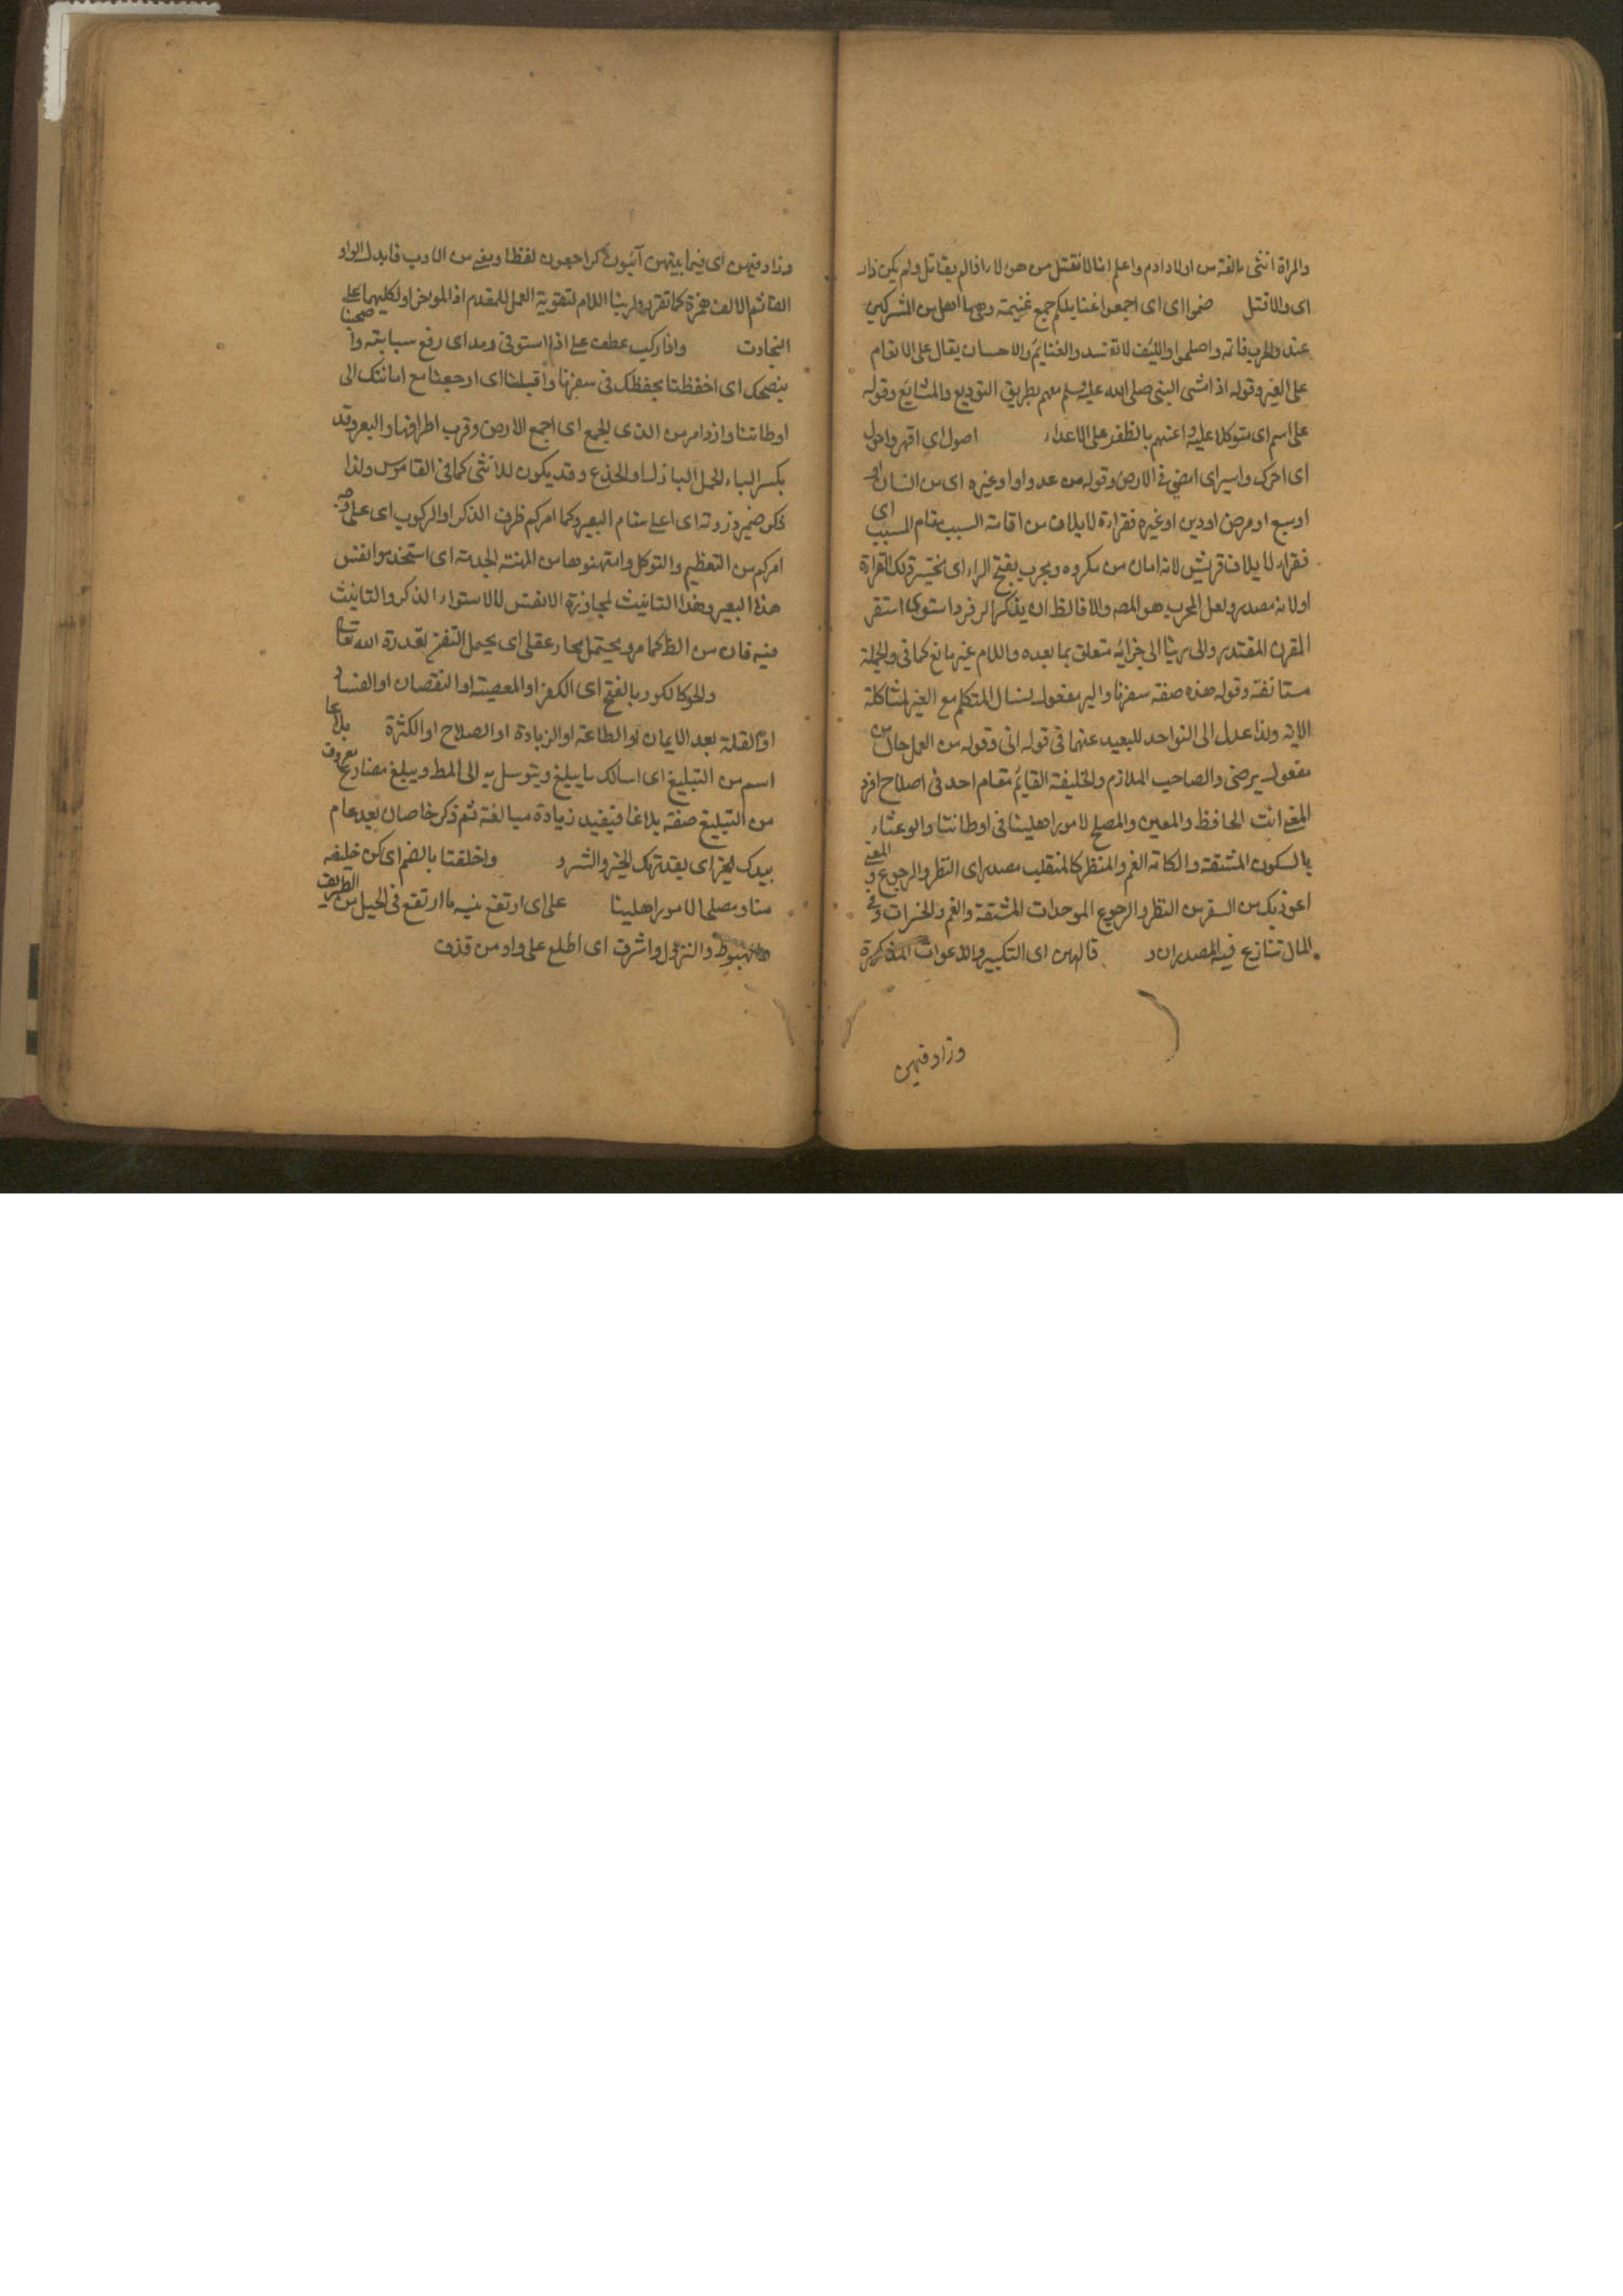 والمراة انثى بالغة من اولاد ادم واعلم انا لا نقتل من هن لا را فالم يقاتل ولم يكن ذار
اى والا فتل ضموا اى اى اجمعوا غنايمكم جمع غنيمة وهى ما اصل من المشركين
عند والحرب فانه واصلحوا والليف لانه تسد والغنايم والاحسان يقال على الانعام
على الغير وقوله اذ امشى النبى صلى الله عليه وسلم معهم بطريق التوديع والمشايع وقوله
على اسم اى متوكلا عليه واعنهم بالظفر على الاعداء اصول اى اقهر واحول
اى احرك واسير اى امضى فى الارض وقوله من عدو او او غيره اى من انسان او
اوسبع او مرض او دين او غيره فقراءة لايلاف من اقامة السبب مقام المسبب اى
فقراء لايلاف قريش لانه امان من مكروه ومجرب بفتح الراء اى تلك القراءة
او لانه مصدر ولعل المجرب هو المصه والا فالظ ان يذكر الر فرد استوى استقر
المقرن المقتدر والى ربنا الى جزائه متعلق بما بعده واللام غير مانع كما فى والجملة
مستانفة وقوله هذه صفة سفرنا والبر مفعول نسال المتكلم مع الغير لمشاكلة
الاية ولذا عدل الى التواحد للبعيد عنهما فى قوله انى وقوله من العمل حال من
مفعول يرضى والصاحب الملازم والخليفة القايم مقام احد فى اصلاح افرد
المعنى انت الحافظ والمعين والمصلح لامور اهلينا فى اوطاننا والوعثاء
بالسكون المشقة والكابة الغم والمنظر كالمنقلب مصدر اى النظر والرجوع و المعنى
اعوذ بك من السفر من النظر والرجوع الموحدات المشقة والغم والخسرات و فى
المال تنازع فيه المصدران و قالهن اى التكبير والدعوات المذكورة
وزاد فيهن
وزاد فيهن اى فيما بينهن آئبون كراجعون لفظا ومعنى من الاوب فابدل الواو
الفا ثم الالف همزة كما تقرر ولربنا اللام لتقوية العمل للمقدم اذ المؤخر او لكليهما على
التجاذب واذا ركب عطف على اذا استوى ومد اى رفع سبابته وا صحبنا
بنصحك اى احفظنا بحفظك فى سفرنا واقبلنا اى ارجعنا مع امانتك الى
اوطاننا وازدامر من الذى الجمع اى اجمع الارض وقرب اطرافها والبعير وقد
بكسر الباء الجمل البازل او الجذع وقد يكون للانثى كما فى القاموس ولذا
ذكر ضمير ذروته اى اعلى سنام البعير وكما امركم ظرف الذكر او الركوب اى على وجه
امركم من التعظيم والتوكل وامتهنوها من المهنة الخدمة اى استخدموا نفس
هذا البعير وهذا التانيث لمجاورة الانفس لا لاستواء الذكر والتانيث
فيه فان من الظ كما مر ويحتمل مجاز عقلى اى يحمل النفر بقدرة الله تعالى
والحور كالكور بالفتح اى الكفر او المعصية او النقصان او الفساد
او القلة بعد الايمان او الطاعة او الزيادة او الصلاح او الكثرة بلاغا
اسم من التبليغ اى اسالك ما يبلغ ويتوسل به الى المط ويبلغ مضارع معروف
من التبليغ صفة بلاغا فيفيد زيادة مبالغة ثم ذكر خاصان بعد عام
بيدك الخير اى بقدرتك الخير والشر و واخلفنا بالضم اى كن خليفة
منا ومصلحا لامور اهلينا على اى ارتفع ثنية ما ارتفع فى الجبل من الطريق
الهبوط والنزول واشرف اى اطلع على واد من قذف